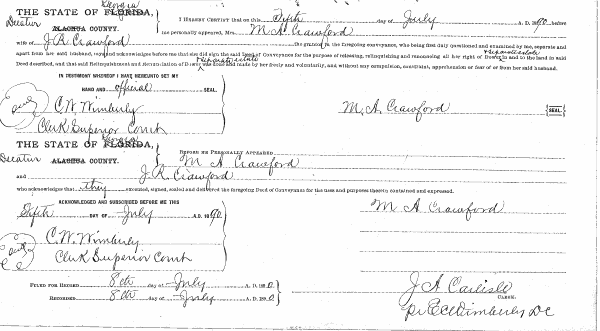 Georgia
THE STATE OF FLORIDA,
Decatur ALACHUA COUNTY.
I HEREBY CERTIFY that on this Fifth day of July A. D. 1890, before
me personally appeared, Mrs. M. A. Crawford
wife of J. R. Crawford the grantor in the foregoing conveyance, who being first duly questioned and examined by me, separate and
apart from her said husband, acknowledged before me that she did sign the said Deed of Conveyance for the purpose of releasing, relinquishing and renouncing all her right of separate estate in and to the land in said
separate estate
Deed described, and that said Relinquishment and Renunciation of Dower was made by her freely and voluntarily, and without any compulsion, constraint, apprehension or fear of or from her said husband.
IN TESTIMONY WHEREOF I HAVE HEREUNTO SET MY
HAND AND official SEAL.
Seal C. W. Wimberly
Clerk Superior Court
M. A. Crawford SEAL
Georgia
THE STATE OF FLORIDA,
Decatur ALACHUA COUNTY.
BEFORE ME PERSONALLY APPEARED
M A Crawford
and J. R. Crawford
who acknowledge that they executed, signed, sealed and delivered the foregoing Deed of Conveyance for the uses and purposes therein contained and expressed.
ACKNOWLEDGED AND SUBSCRIBED BEFORE ME THIS
Fifth DAY OF July A. D. 1890
M A Crawford
Seal C. W. Wimberly
Clerk Superior Court
FILED FOR RECORD 8th day of July A. D. 1890
RECORDED 8th day of July A. D. 1890
J. A. Carlisle
CLERK.
pr E C Wimberly DC